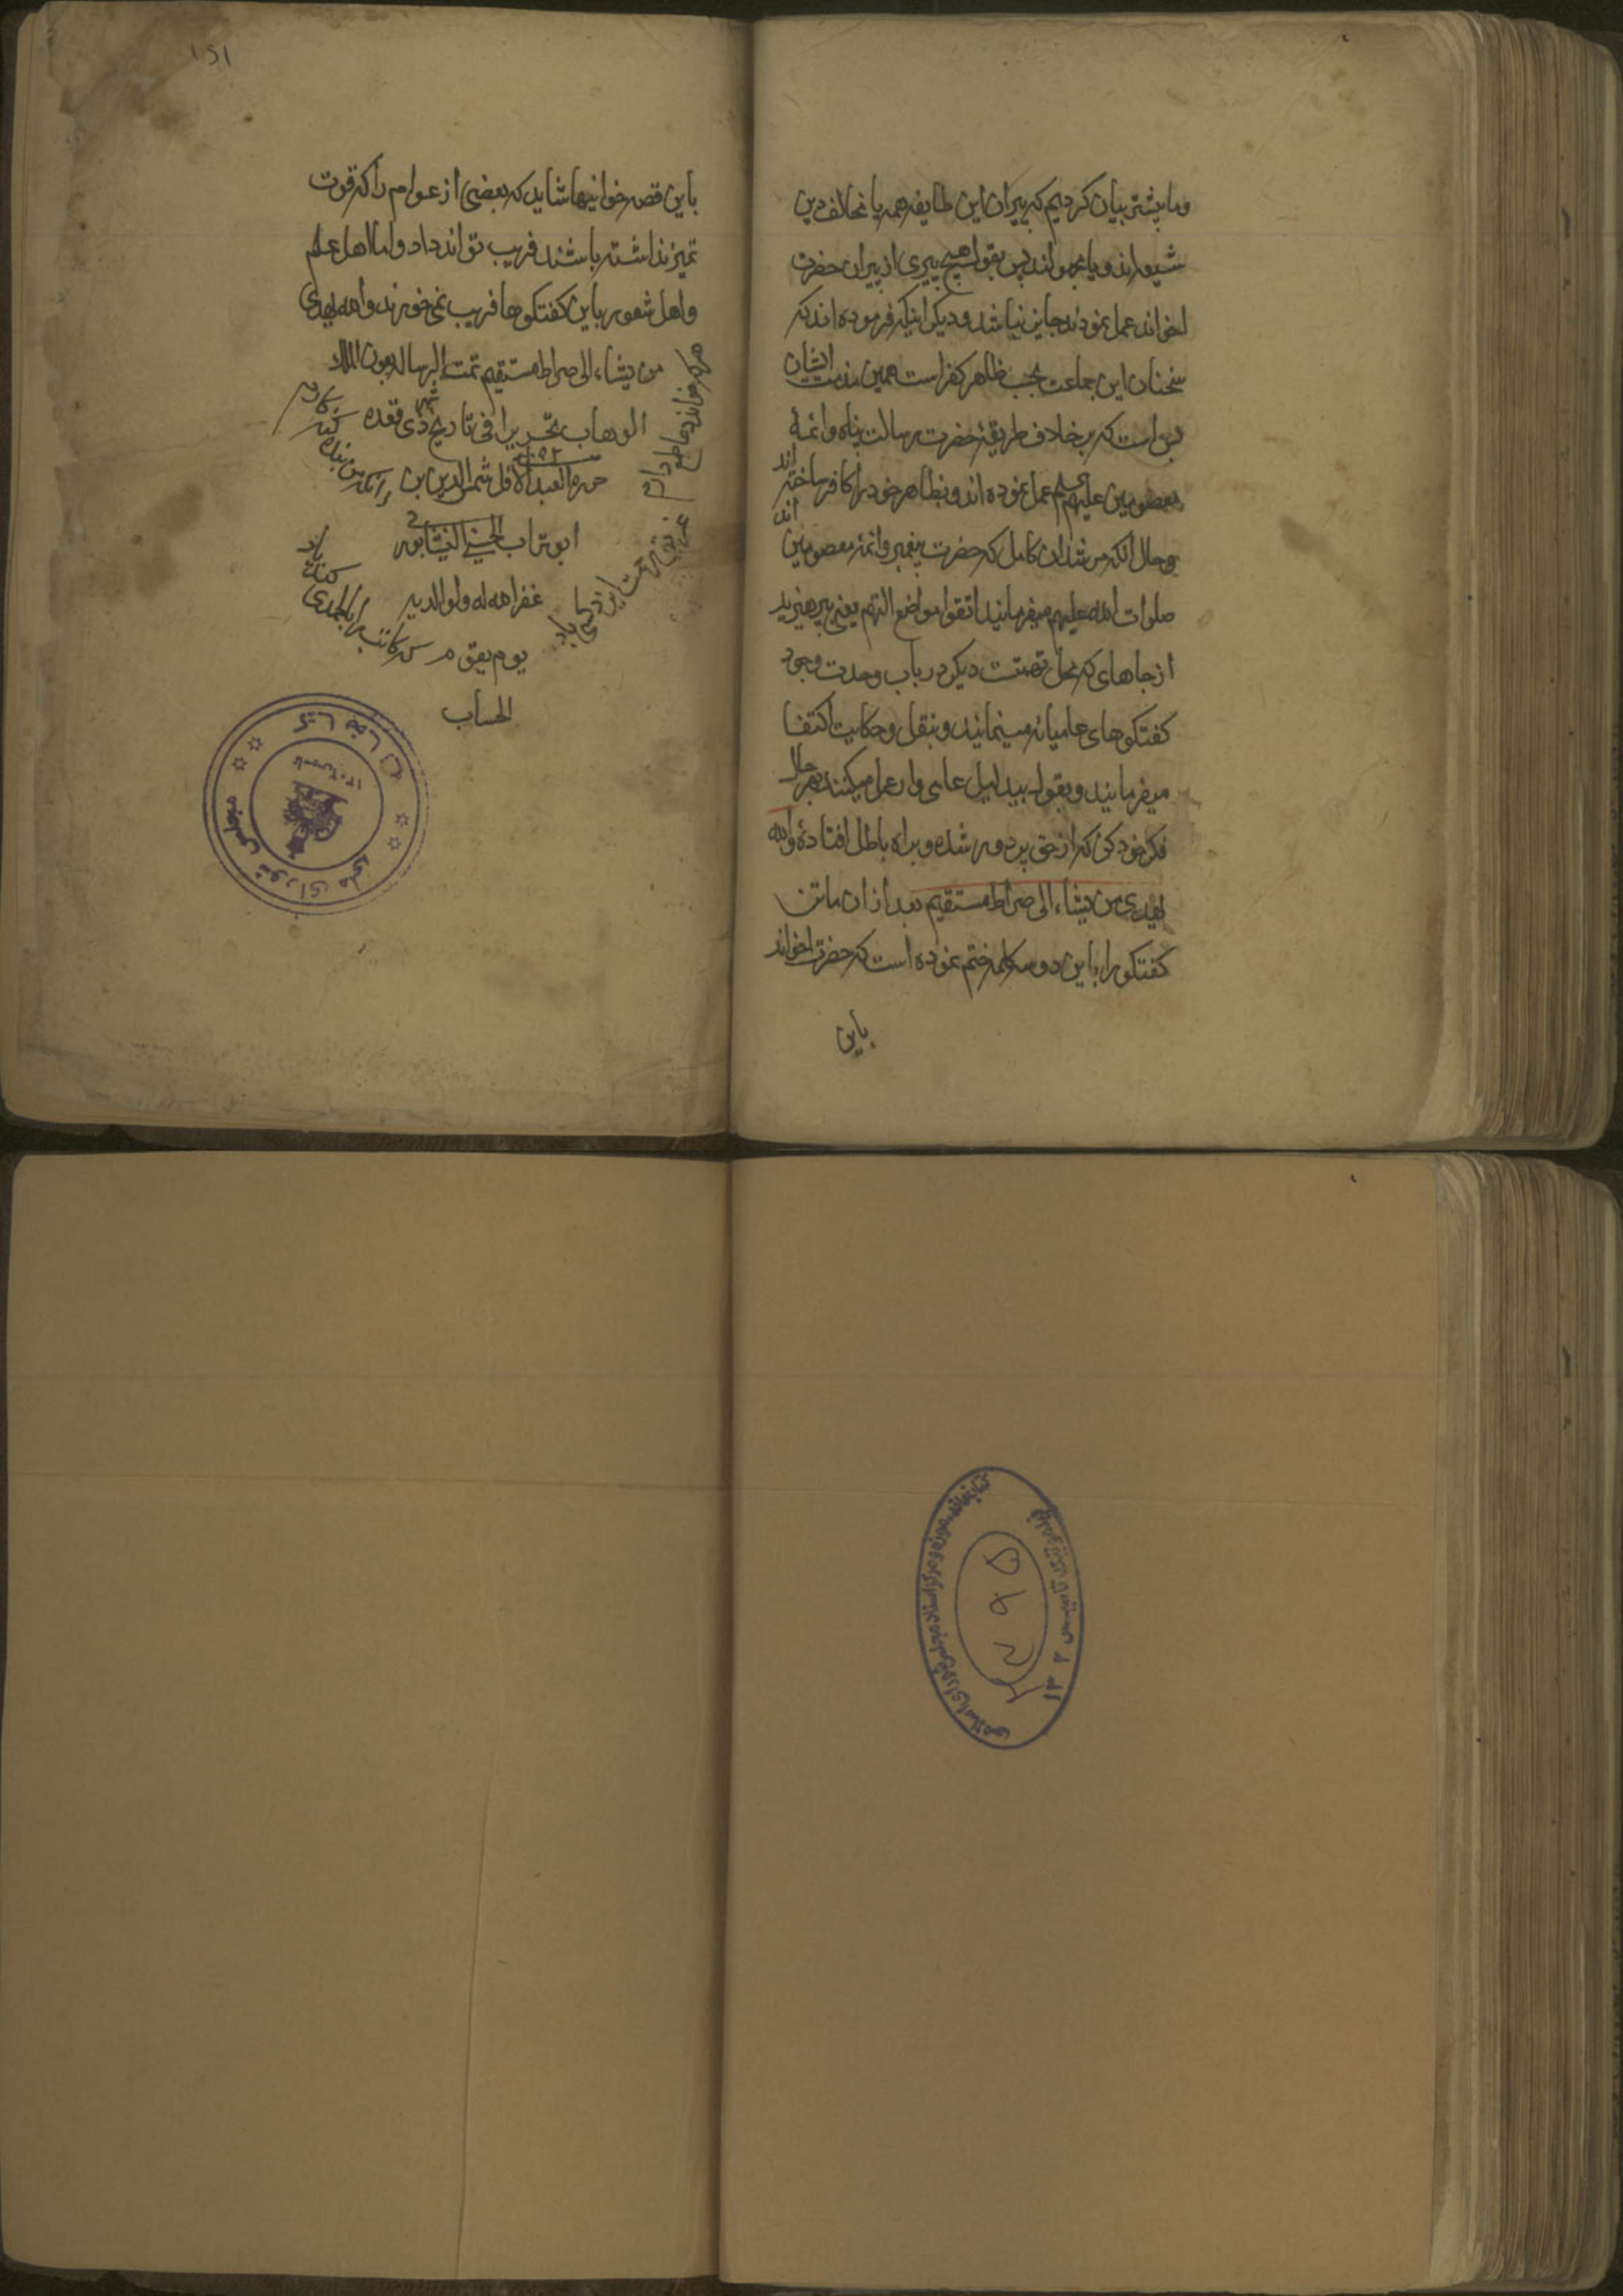 وما پیشتر بیان کردیم که پیران این طایفه همه یا مخالف دین
شیعه اند و یا مجهولند پس بقول هیچ پیری از پیران حضرت
اخواند عمل نمودن جایز نباشد و دیگر اینکه فرموده اند که
سخنان این جماعت بحسب ظاهر کفر است همین مذمت ایشان
بس است که بر خلاف طریقهٔ حضرت رسالت پناه و ائمهٔ
معصومین علیهم عمل نموده اند و بظاهر خود را کافر ساخته اند
و حال آنکه مرشدان کامل که حضرت پیغمبر و ائمهٔ معصومین اند
صلوات الله علیهم میفرمایند اتقوا مواضع التهم یعنی بپرهیزید
از جاهای که محل تهمتست دیگر در باب وحدت وجود
کفتکوهای عامیانه مینمایند و بنقل و حکایت اکتفا
میفرمایند و بقول بیدلیل عامی وار عمل میکنند بهر حال
فکر خود کن که از حق بر دور شده و براه باطل افتادهٔ والله
یهدی من یشاء الی صراط مستقیم بعد از ان ماتن
کفتکو را باین دو سه کلمه ختم نموده است که حضرت اخواند
باین
۱۵۱
باین قصه خوانیها شاید که بعضی از عوام را که قوت
تمیز نداشته باشند فریب تواند داد و اما اهل علم
و اهل شعور باین کفتکوها فریب نمی خورند والله یهدی
من یشاء الی صراط مستقیم تمت الرسالة بعون الملک
الوهاب تحریرا فی تاریخ شهر ذی قعده
حرره العبد الاقل شمس الدین بن
ابو تراب الحسینی النیشابوری
غفر الله له ولوالدیه
یوم یقوم
الحساب
هر که خواند دعا طمع دارم
زانکه من بنده کنه کارم
که کاتب را بالحمدی کند یاد
کتابخانه مجلس شورای ملی
کتابخانه موزه و مرکز اسناد مجلس شورای اسلامی
تاسیس ۱۳۰۲